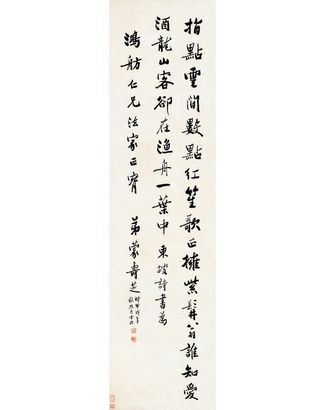 指點雲間數點红笙歌正擁紫髯翁誰知愛
酒龍山客卻在漁舟一葉中東坡詩書為
鴻舫仁兄法家正賓
弟蒙壽芝